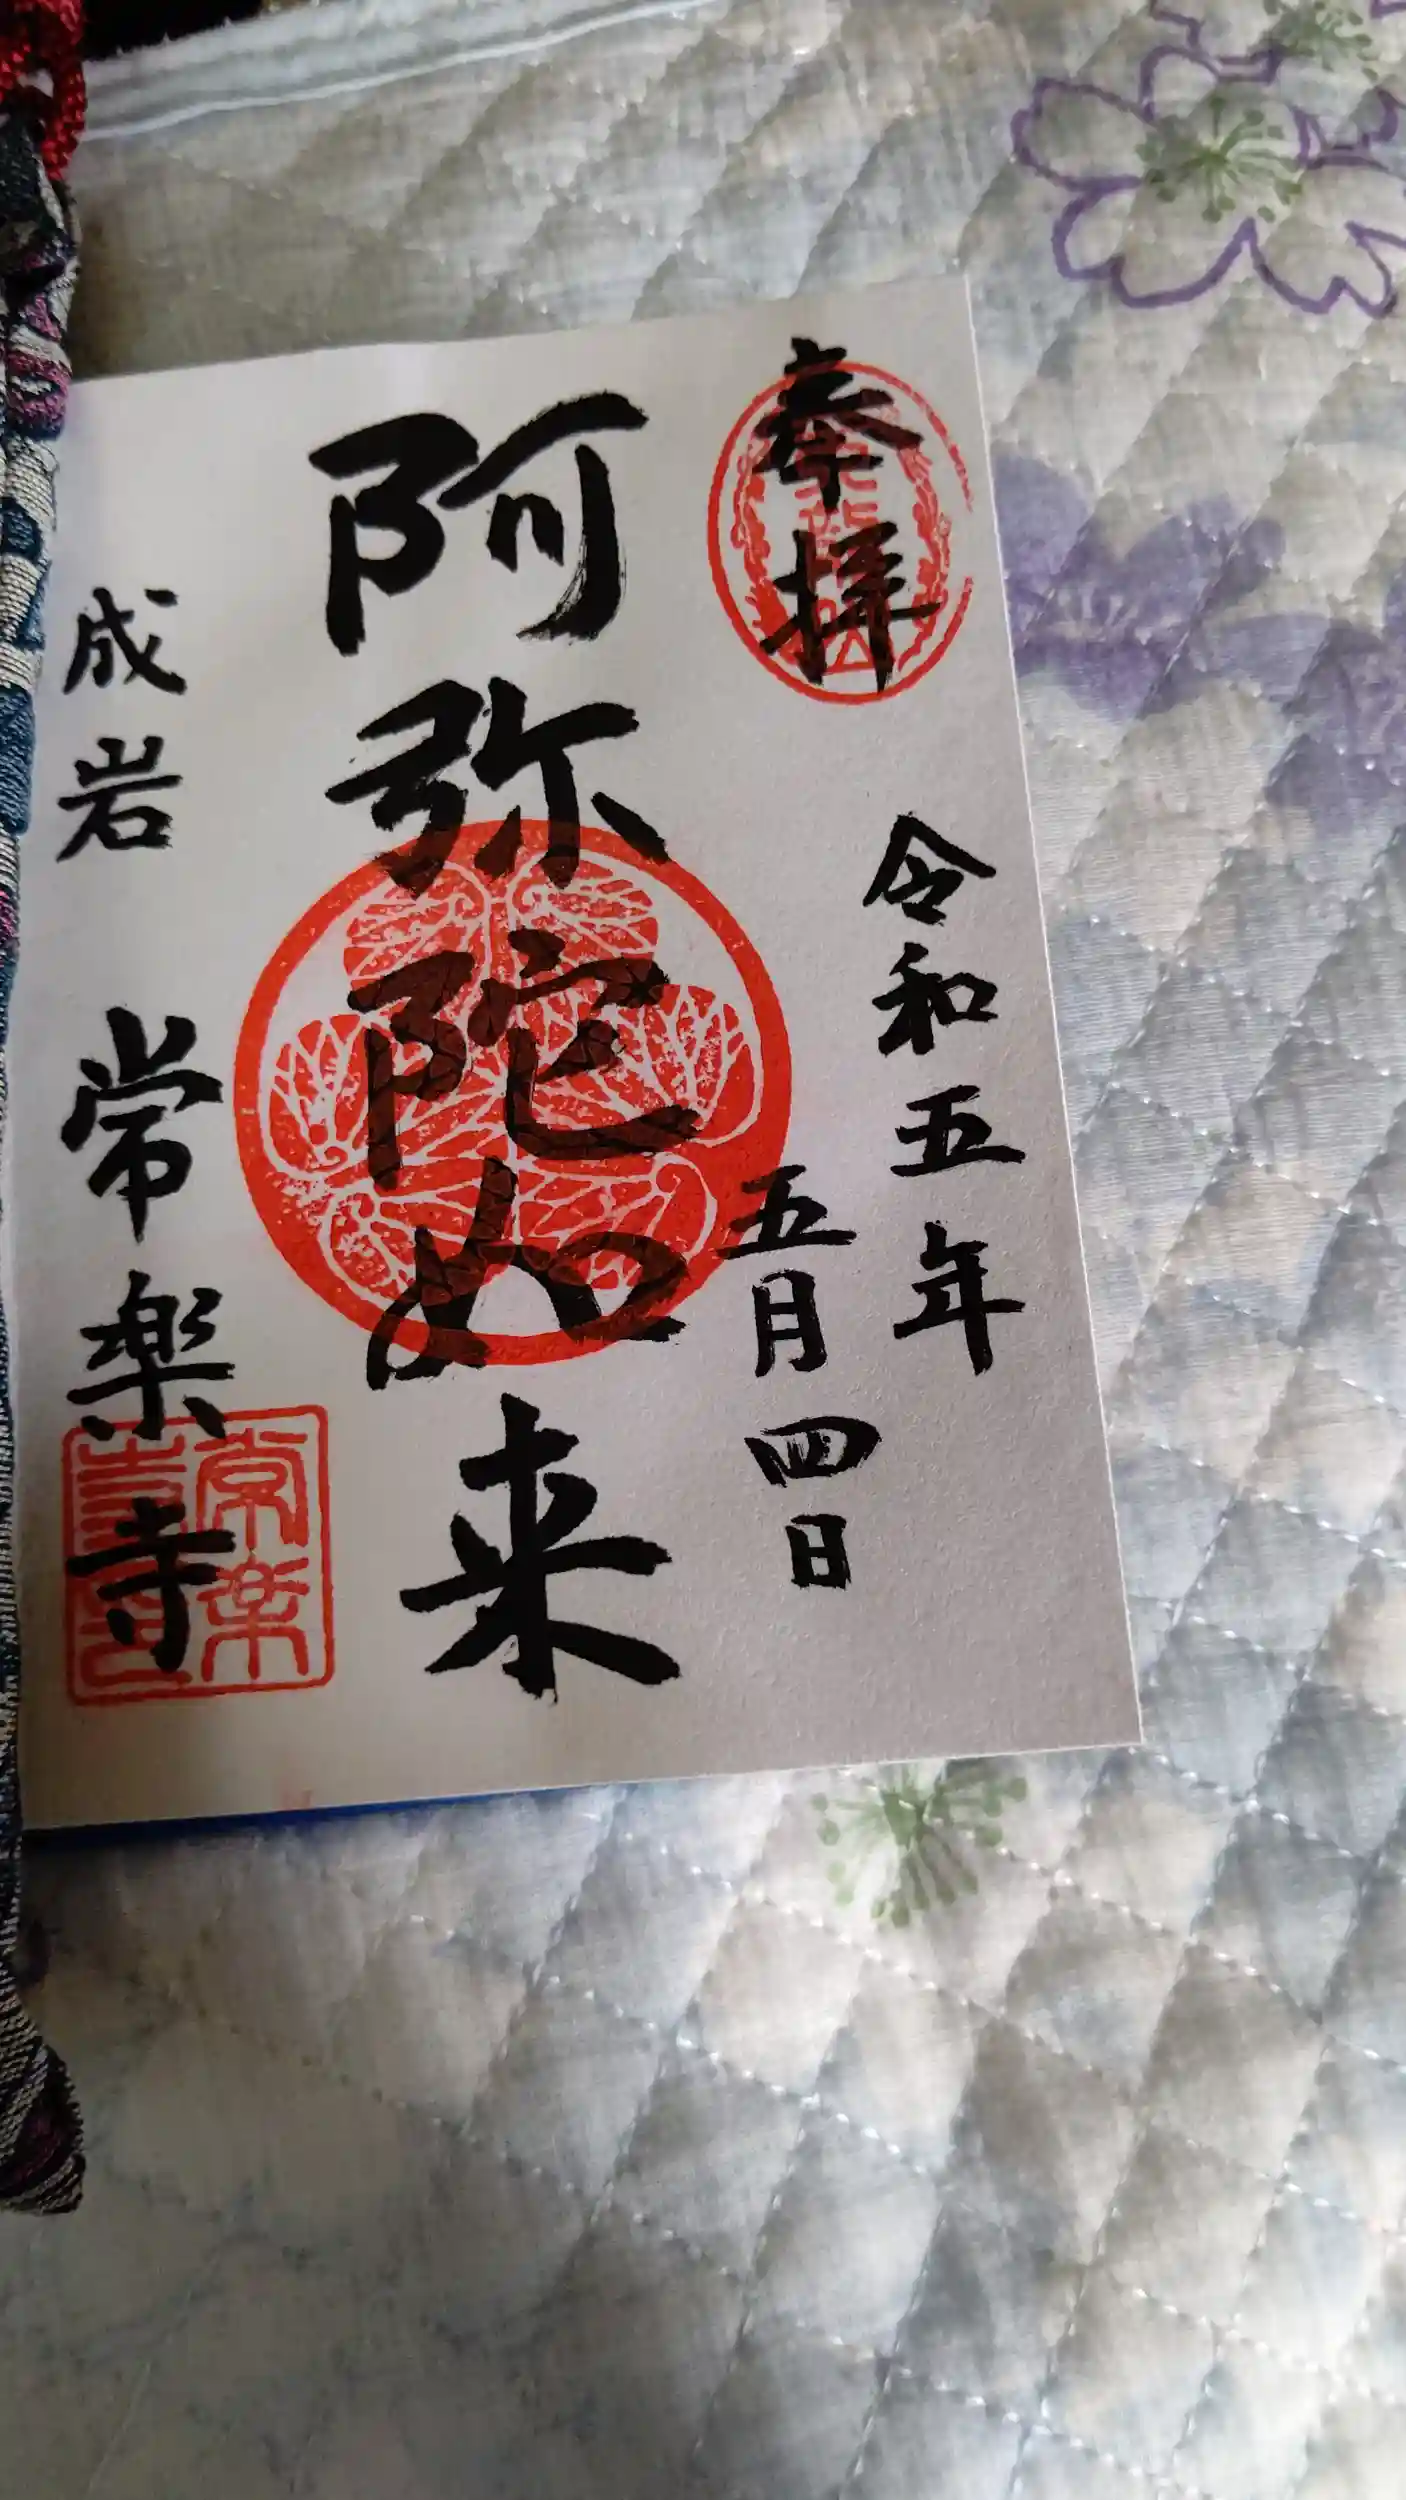 奉拝
令和五年
五月四日
阿弥陀如来
成岩 常楽寺
常楽